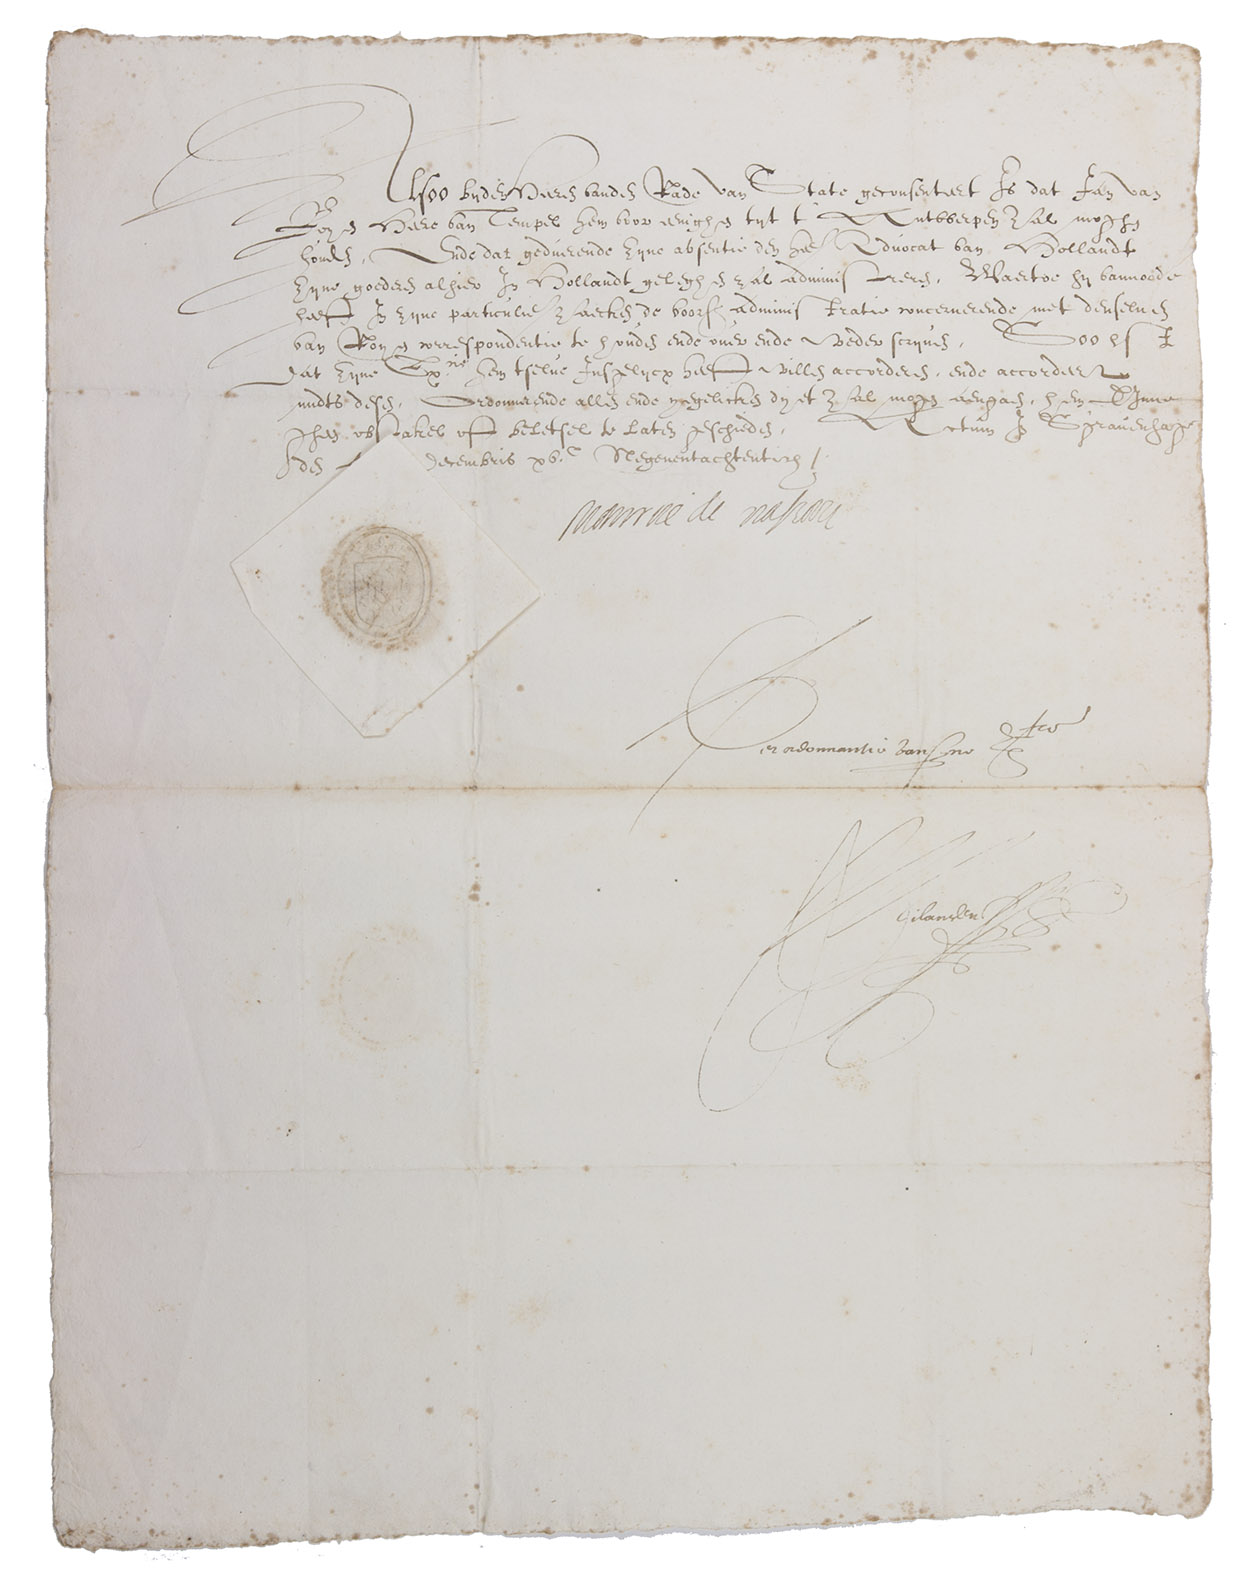 Alsoo byden Heeren vanden Rade van State geconsenteert Is dat Jan van
Roy Heere van Tempel hem voor eenighen tyt t Antwerpen zal moghen
houden, Ende dat geduerende zyne absentie den Advocat van Hollandt
zyne goederen alhier In Hollandt geleghen zal administreren, Waertoe hy vannoode
heeft In zyne particuliere zaecken de voors administratie concernerende met denseluen
van Royen correspondentie te houden ende ouer ende weder scryuen, Soo Ist
dat zyne Ex.tie hem tselue heeft willen accorderen, ende accordeert
midts desen, Ordonnerende allen ende yegelicken dyet zal mogen aengaen, hem
obstakel oft beletsel te laten geschieden, Actum In Sgrauenhage
den decembris xvc Negenentachtentich /.
Maurice de nassau
Per ordonnantie van syne Ex.tie
Milander